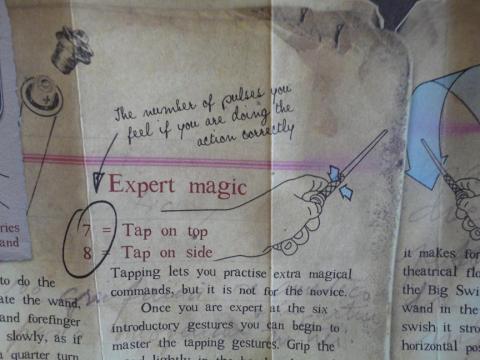 The number of pulses you
feel if you are doing the
action correctly
Expert magic
7 = Tap on top
8 = Tap on side
Tapping lets you practise extra magical
commands, but it is not for the novice.
Once you are expert at the six
introductory gestures you can begin to
master the tapping gestures. Grip the
ries
and
to do the
ate the wand,
and forefinger
slowly, as if
quarter turn
it makes for
theatrical flo
the Big Swi
wand in the
swish it stro
horizontal pos